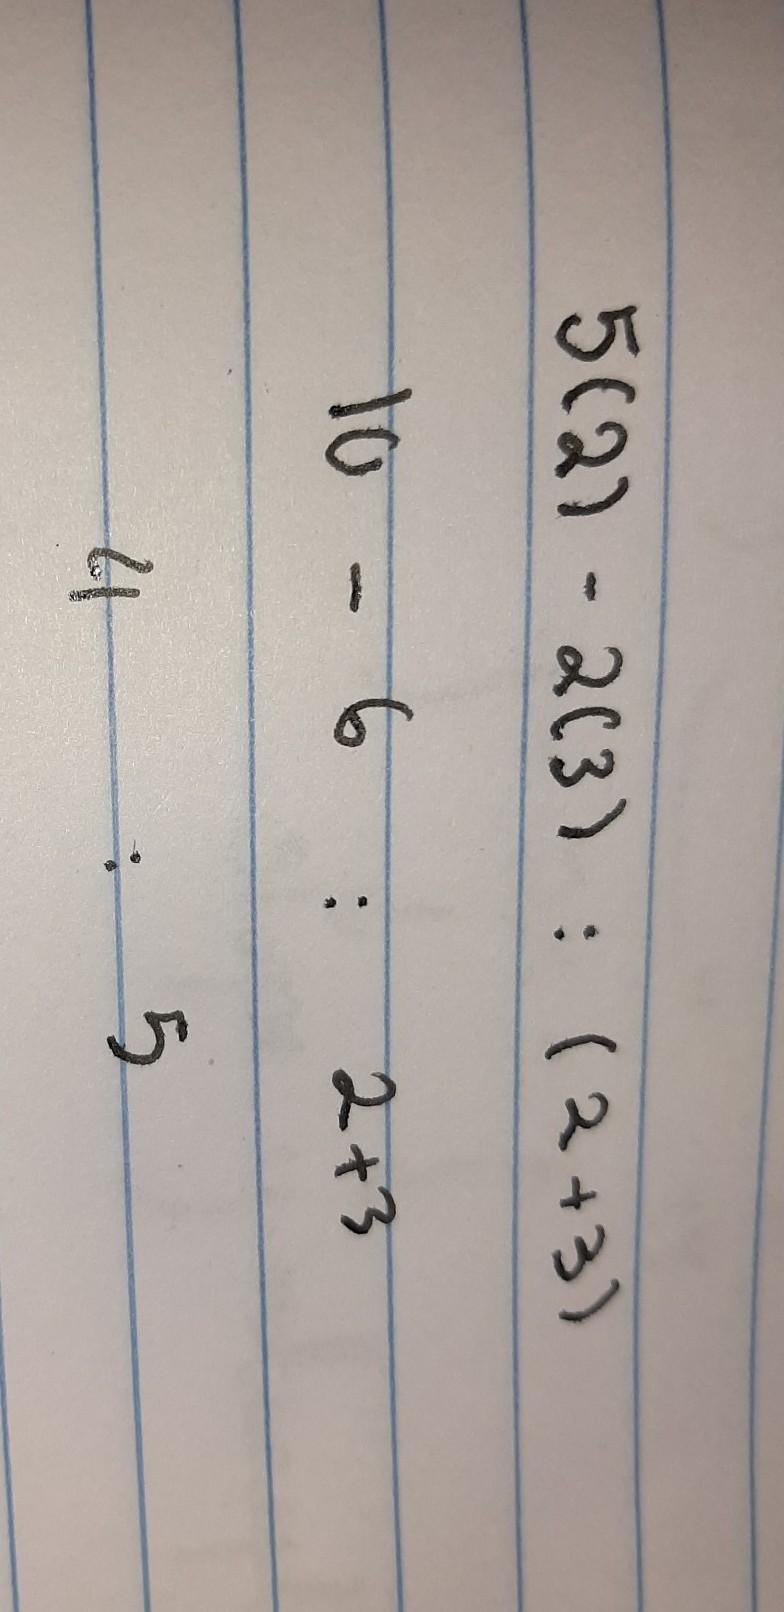 5(2) - 2(3) : (2+3)
10 - 6 : 2+3
4 : 5